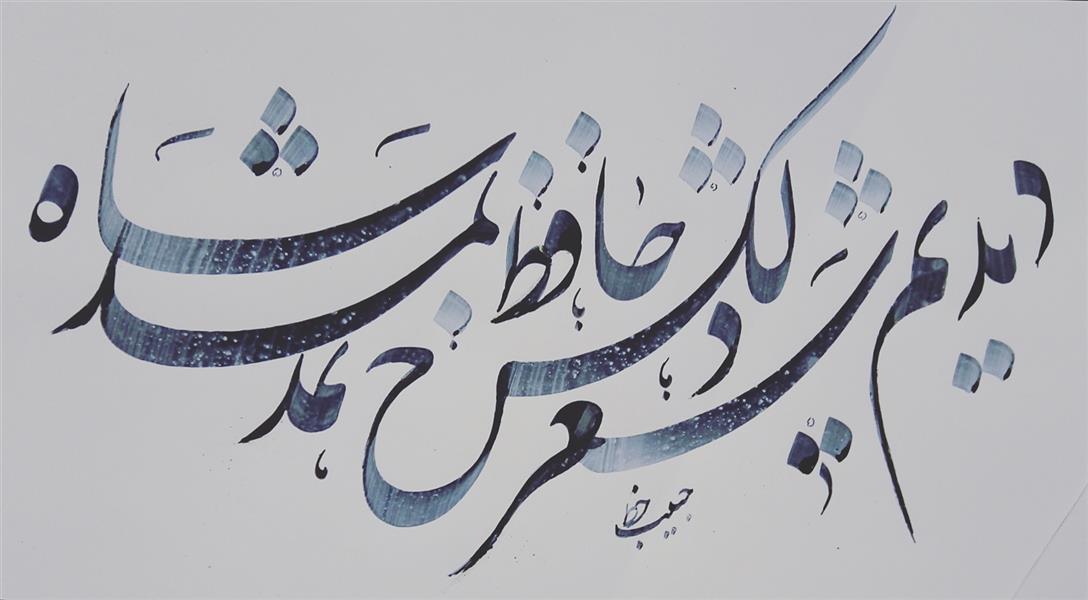 دیدیم شعر دلکش حافظ بمدح شاه
حبیب